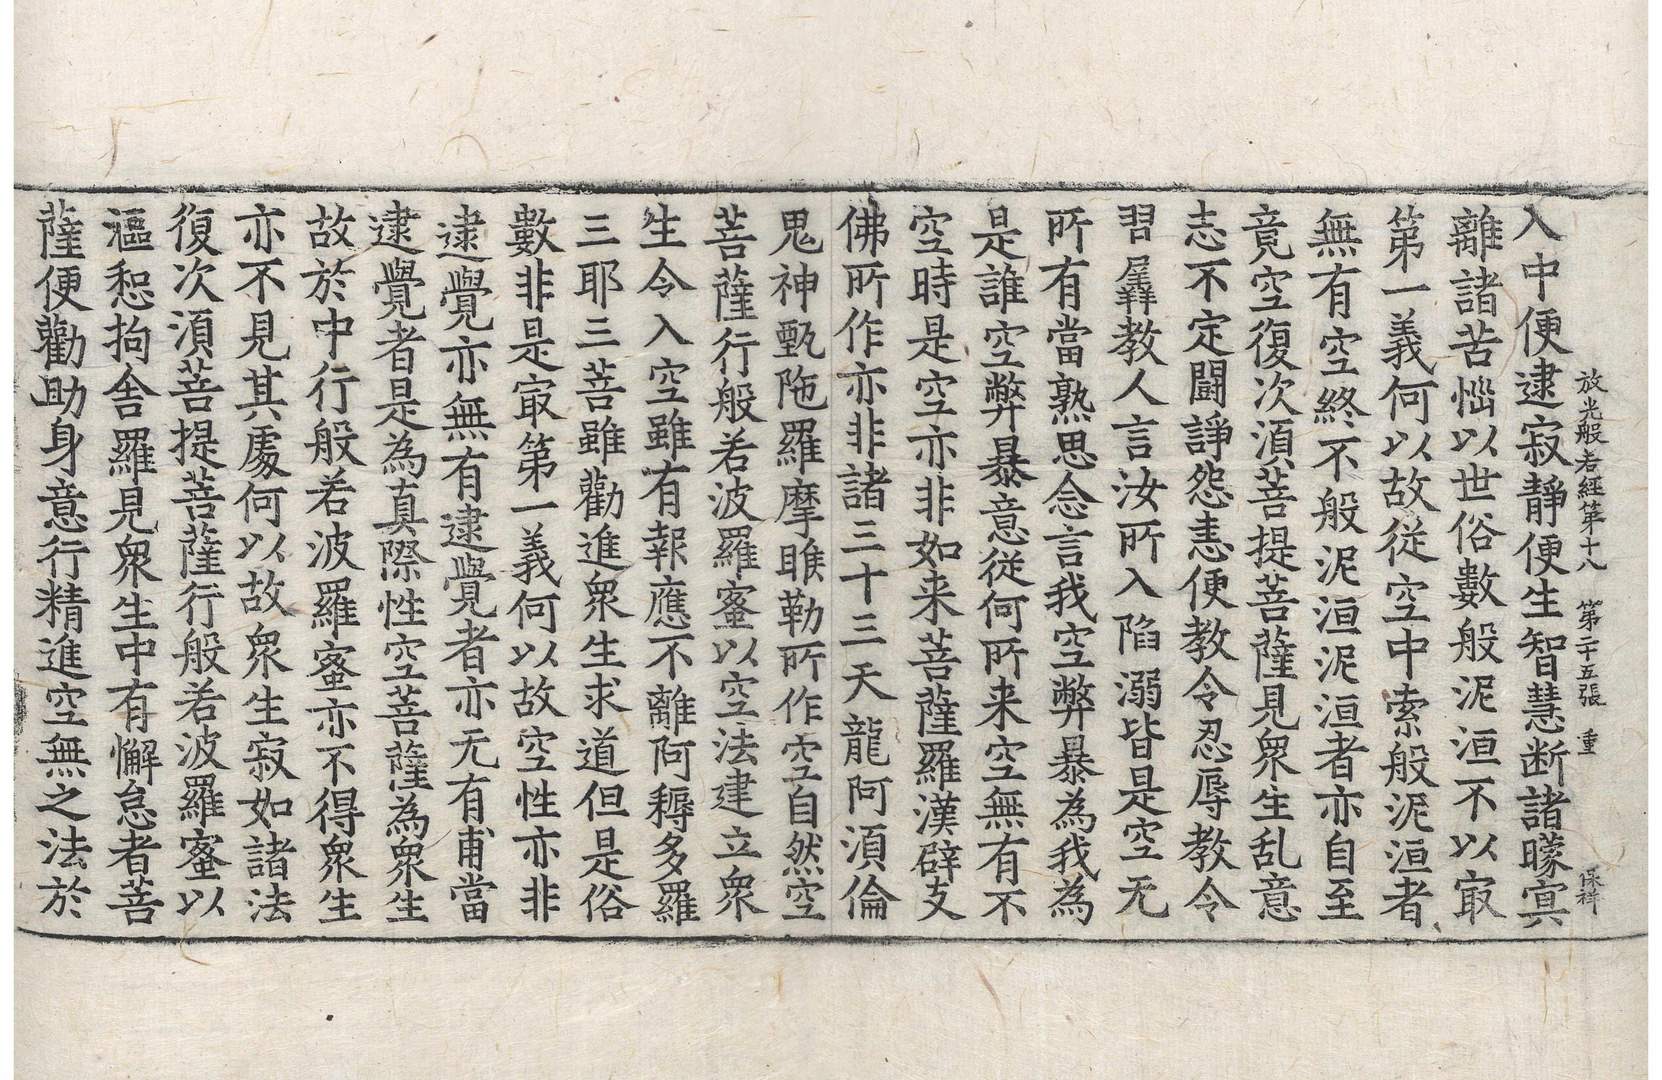 放光般若經第十八 第二十五張 重 保祥
入中便逮寂靜便生智慧断諸曚㝠
離諸苦惱以世俗數般泥洹不以㝡
第一義何以故從空中索般泥洹者
無有空終不般泥洹泥洹者亦自至
竟空復次湏菩提菩薩見衆生乱意
志不定闘諍怨恚便教令忍辱教令
習羼教人言汝所入陷溺皆是空无
所有當熟思念言我空弊暴為我為
是誰空弊暴意從何所来空無有不
空時是空亦非如来菩薩羅漢辟支
佛所作亦非諸三十三天龍阿湏倫
鬼神甄陁羅摩睺勒所作空自然空
菩薩行般若波羅蜜以空法建立衆
生令入空雖有報應不離阿耨多羅
三耶三菩雖勸進衆生求道但是俗
數非是㝡第一義何以故空性亦非
逮覺亦無有逮覺者亦无有甫當
逮覺者是為真際性空菩薩為衆生
故於中行般若波羅蜜亦不得衆生
亦不見其處何以故衆生寂如諸法
復次湏菩提菩薩行般若波羅蜜以
漚恕拘舍羅見衆生中有懈怠者菩
薩便勸助身意行精進空無之法於